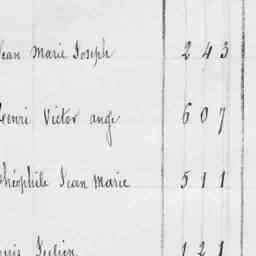 Jean Marie Joseph 243
Henri Victor ange 607
Théophile Jean Marie 511
Louis Julien 121